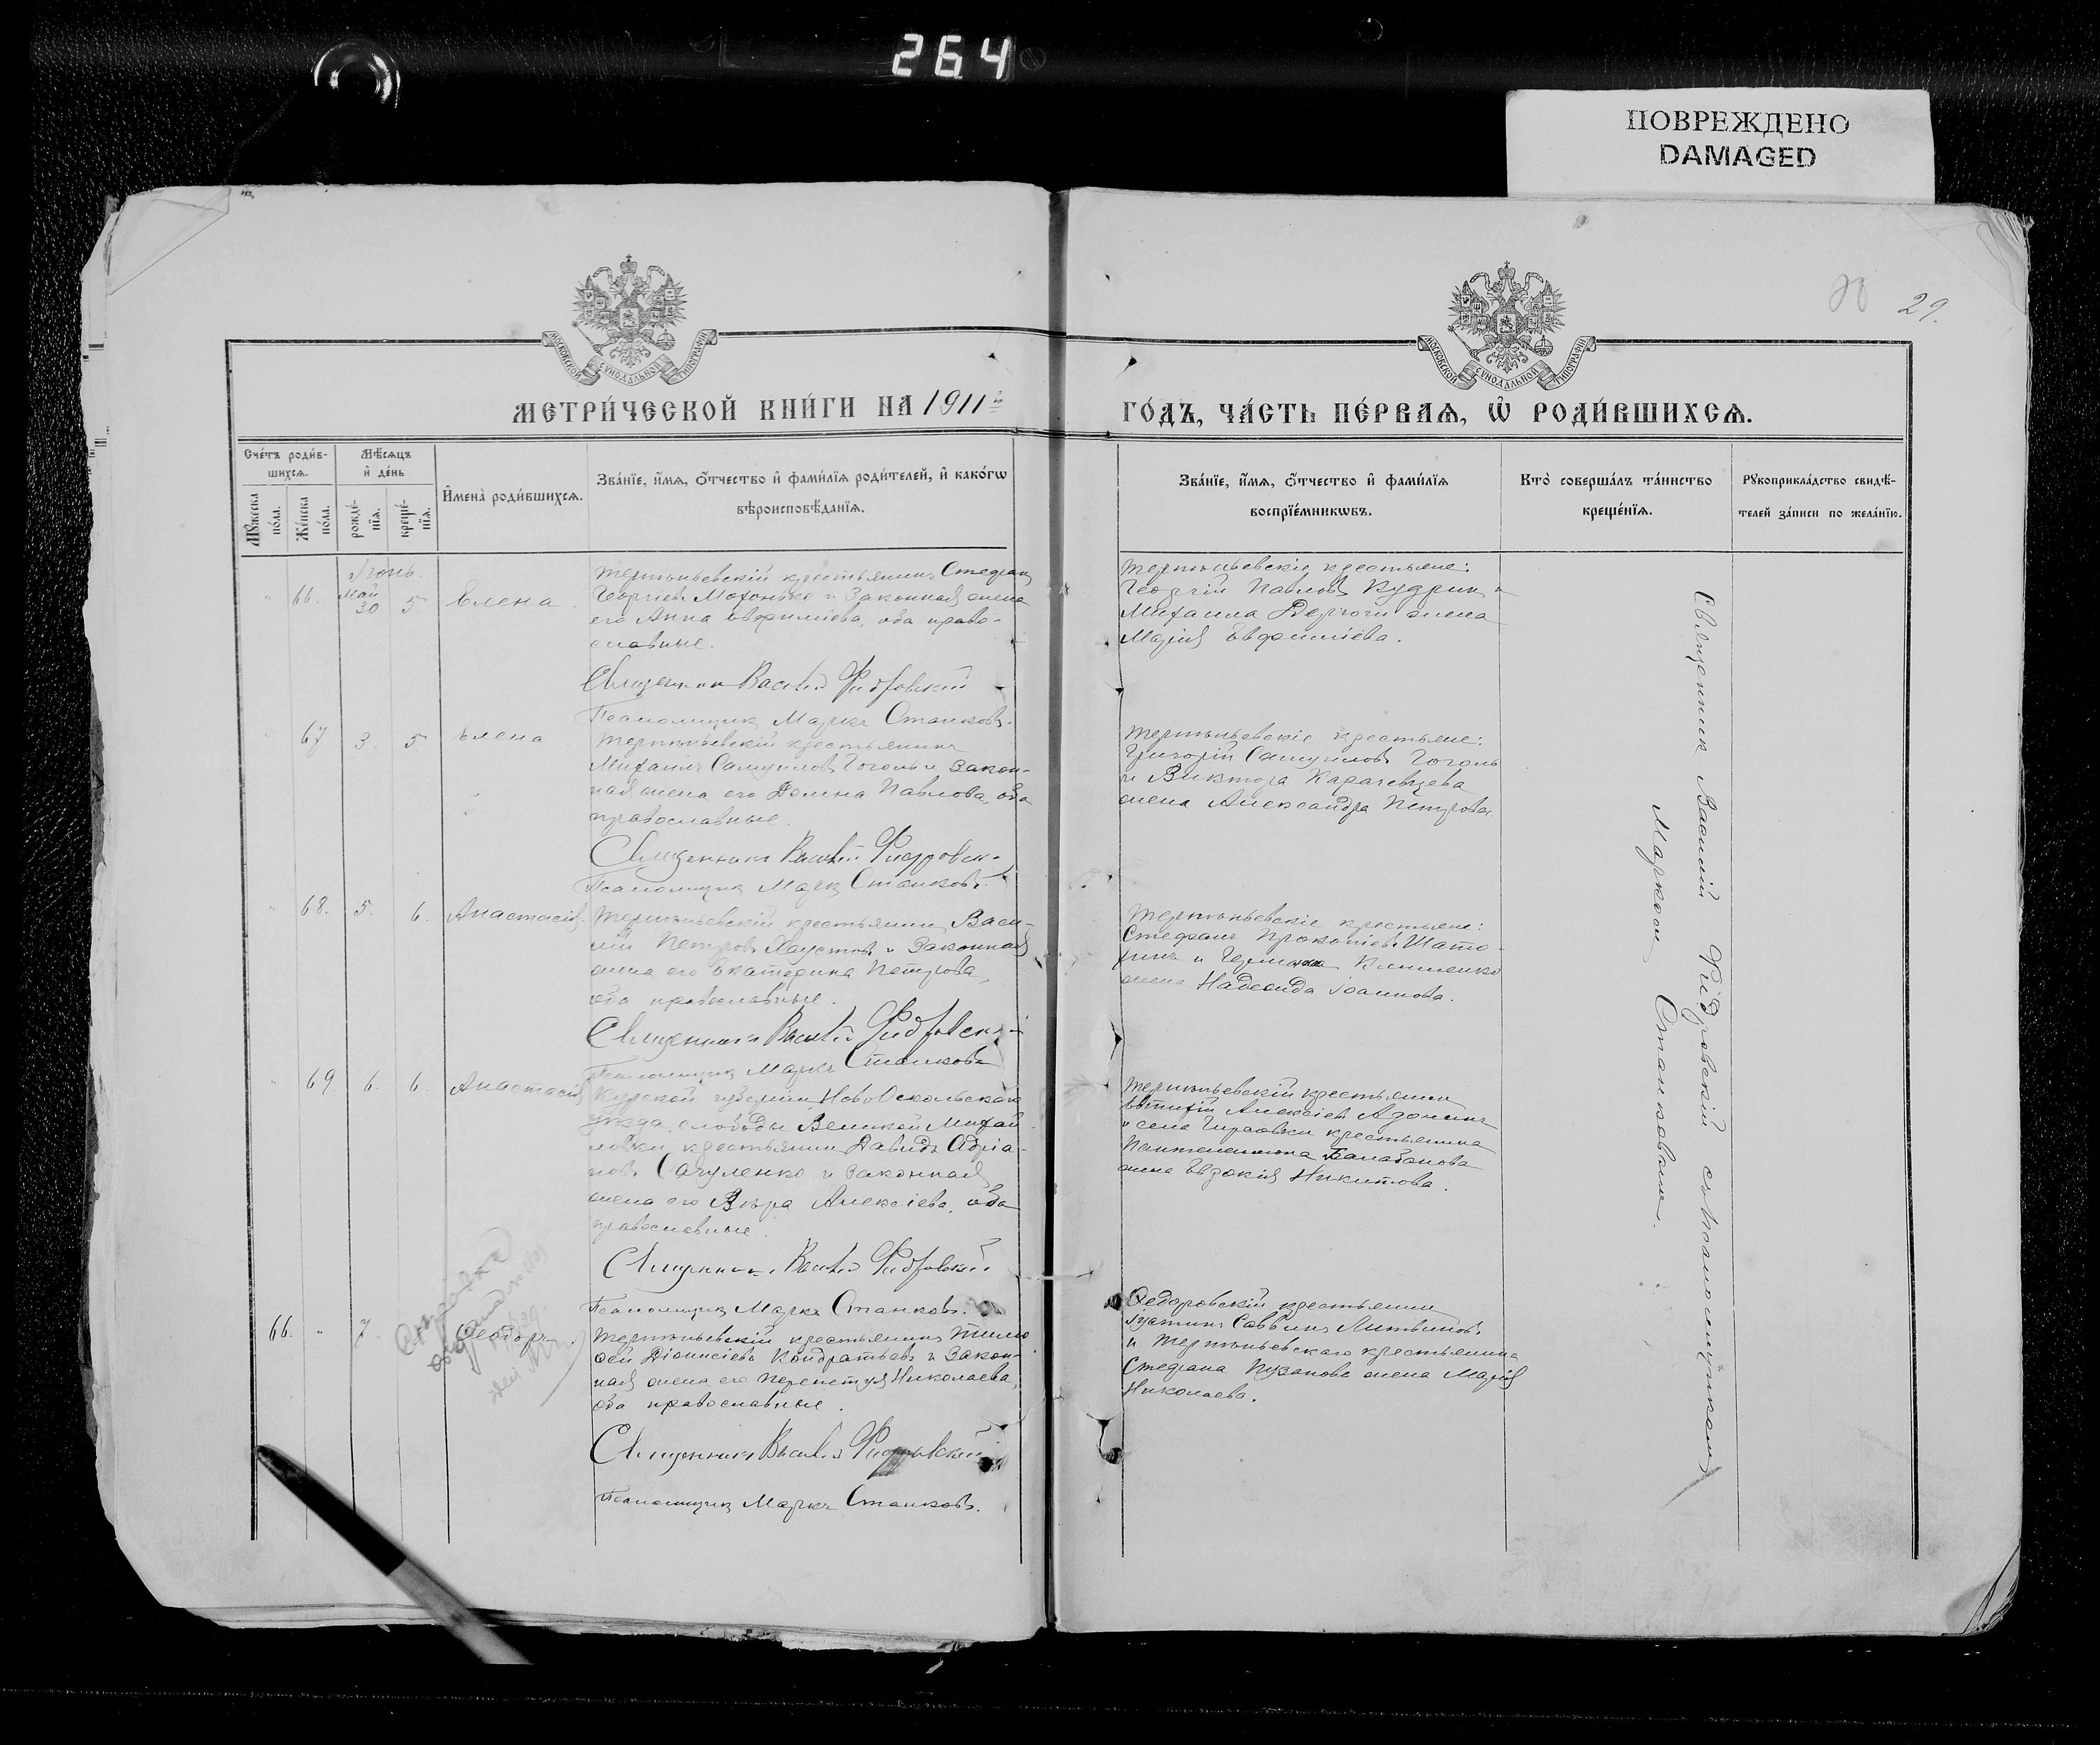 264
ПОВРЕЖДЕНО
DAMAGED
29.
МОСКОВСКОЙ СѴНОДАЛЬНОЙ ТИПОГРАФІИ
МОСКОВСКОЙ СѴНОДАЛЬНОЙ ТИПОГРАФІИ
МЕТРИ́ЧЕСКОЙ КНИ́ГИ НА 1911й
ГО́ДЪ, ЧА́СТЬ ПЕ́РВАѦ, Ѡ РОДИ́ВШИХСѦ.
Сче́тъ роди́в-
шихсѧ.
Мꙋ́жеска
по́ла.
Же́нска
по́ла.
Мѣ́сѧцъ
и҆ де́нь
рожде́-
нїѧ.
креще́-
нїѧ.
И҆мена̀ роди́вшихсѧ.
Зва́нїе, и҆́мѧ, ѻ҆́тчество и҆ фами́лїѧ роди́телей, и҆ како́гѡ
вѣроисповѣ́данїѧ.
Зва́нїе, и҆́мѧ, ѻ҆́тчество и҆ фами́лїѧ
воспрїе́мникѡвъ.
Кто̀ соверша́лъ та́инство
креще́нїѧ.
Рꙋкоприкла́дство свидѣ́-
телей за́писи по жела́нїю.
Іюнь.
66. Май 30 5 Елена
Терпѣньевскій крестьянинъ Стефанъ
Георгіевъ Мохонько и законная жена
его Анна Евфиміева, оба право-
славные.
Священникъ Василій Фидровскій
Псаломщикъ Маркъ Станковъ.
Терпѣньевскіе крестьяне:
Георгій Павловъ Кудринъ и
Михаила Дергоги жена
Марія Евфиміева.
67 3. 5 Елена
Терпѣньевскій крестьянинъ
Михаилъ Самуиловъ Гоголь и закон-
ная жена его Домна Павлова, оба
православные.
Священникъ Василій Фидровск.
Псаломщикъ Маркъ Станковъ.
Терпѣньевскіе крестьяне:
Григорій Самуиловъ Гоголь
и Виктора Карачевцева
жена Александра Петрова.
68. 5. 6. Анастасія.
Терпѣньевскій крестьянинъ Васи-
лій Петровъ Хаустовъ и законная
жена его Екатерина Петрова,
оба православные.
Священникъ Василій Фидровскій
Псаломщикъ Маркъ Станковъ
Терпѣньевскіе крестьяне:
Стефанъ Прокопіевъ Шато-
хинъ и Германа Клименко
жена Надежда Іоаннова.
69 6. 6. Анастасія
Курской губерніи, НовоОскольскаго
уѣзда, слободы Великой Михай-
ловки, крестьянинъ Давидъ Адріа-
новъ Сагуленко и законная
жена его Вѣра Алексіева, оба
православные.
Священникъ Василій Фидровскій
Псаломщикъ Маркъ Станковъ.
Терпѣньевскій крестьянинъ
Евтихій Алексіевъ
и села Гирсовки крестьянина
Пантелеимона Балабанова
жена Евдокія Никитова.
66. 7. Ѳеодоръ
Терпѣньевскій крестьянинъ Тимо-
ѳей Діонисіевъ Кондратьевъ и закон-
ная жена его Перепетуя Николаева,
оба православные.
Священникъ Василій Фидровскій
Псаломщикъ Маркъ Станковъ.
Ѳедоровскій крестьянинъ
Іустинъ Саввинъ Литвиновъ
и Терпѣньевскаго крестьянина
Стефана Пузанова жена Марія
Николаева.
Священникъ Василій Фидровскій съ псаломщикомъ
Маркомъ Станковымъ.